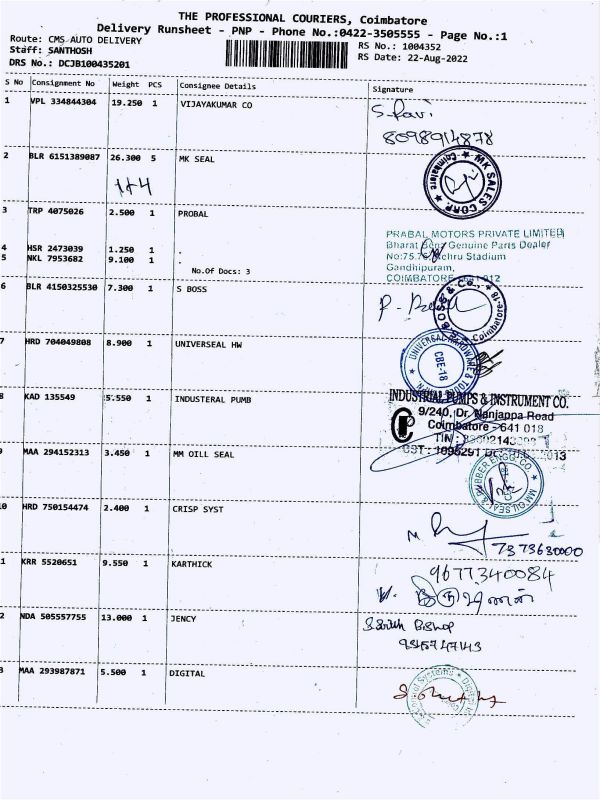 THE PROFESSIONAL COURIERS, Coimbatore
Delivery Runsheet - PNP - Phone No.:0422-3505555 - Page No.:1
Route: CMS AUTO DELIVERY
Staff: SANTHOSH
DRS No.: DCJB100435201
RS No.: 1004352
RS Date: 22-Aug-2022
S No Consignment No Weight PCS Consignee Details Signature
1 VPL 334844304 19.250 1 VIJAYAKUMAR CO
8098914878
2 BLR 6151389087 26.300 5 MK SEAL
1+4
MK SALES CORP
Coimbatore
3 TRP 4075026 2.500 1 PROBAL
PRABAL MOTORS PRIVATE LIMITED
Bharat Benz Genuine Parts Dealer
Nehru Stadium
Gandhipuram,
COIMBATORE
4 HSR 2473039 1.250 1 .
5 NKL 7953682 9.100 1 .
No.Of Docs: 3
6 BLR 4150325530 7.300 1 S BOSS
BOSS & Co.,
Coimbatore-18
7 HRD 704049808 8.900 1 UNIVERSEAL HW
UNIVERSAL HARDWARE &
CBE-18
8 KAD 135549 5.550 1 INDUSTERAL PUMB
INDUSTRIAL PUMPS & INSTRUMENT CO.
9/240, Dr. Nanjappa Road
Coimbatore - 641 018
TIN :
CST : 1095291
9 MAA 294152313 3.450 1 MM OILL SEAL
MM OIL SEAL & RUBBER ENGG. CO.
10 HRD 750154474 2.400 1 CRISP SYST
7373630000
11 KRR 5520651 9.550 1 KARTHICK
9677340084
12 NDA 505557755 13.000 1 JENCY
Bishop
13 MAA 293987871 5.500 1 DIGITAL